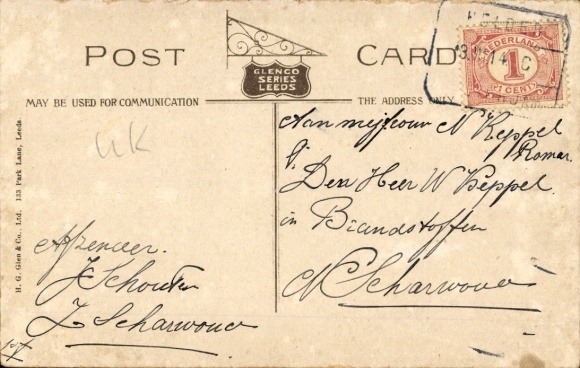 POST CARD
GLENCO
SERIES
LEEDS
MAY BE USED FOR COMMUNICATION
THE ADDRESS ONLY
NEDERLAND
1
CENT
H. G. Glen & Co., Ltd. 133 Park Lane, Leeds.
UK
Aan mejfouw N Keppel
Den Heer W Keppel
in Brandstoffen
N Scharwoude
Afzender.
J Schouten
Z Scharwoude